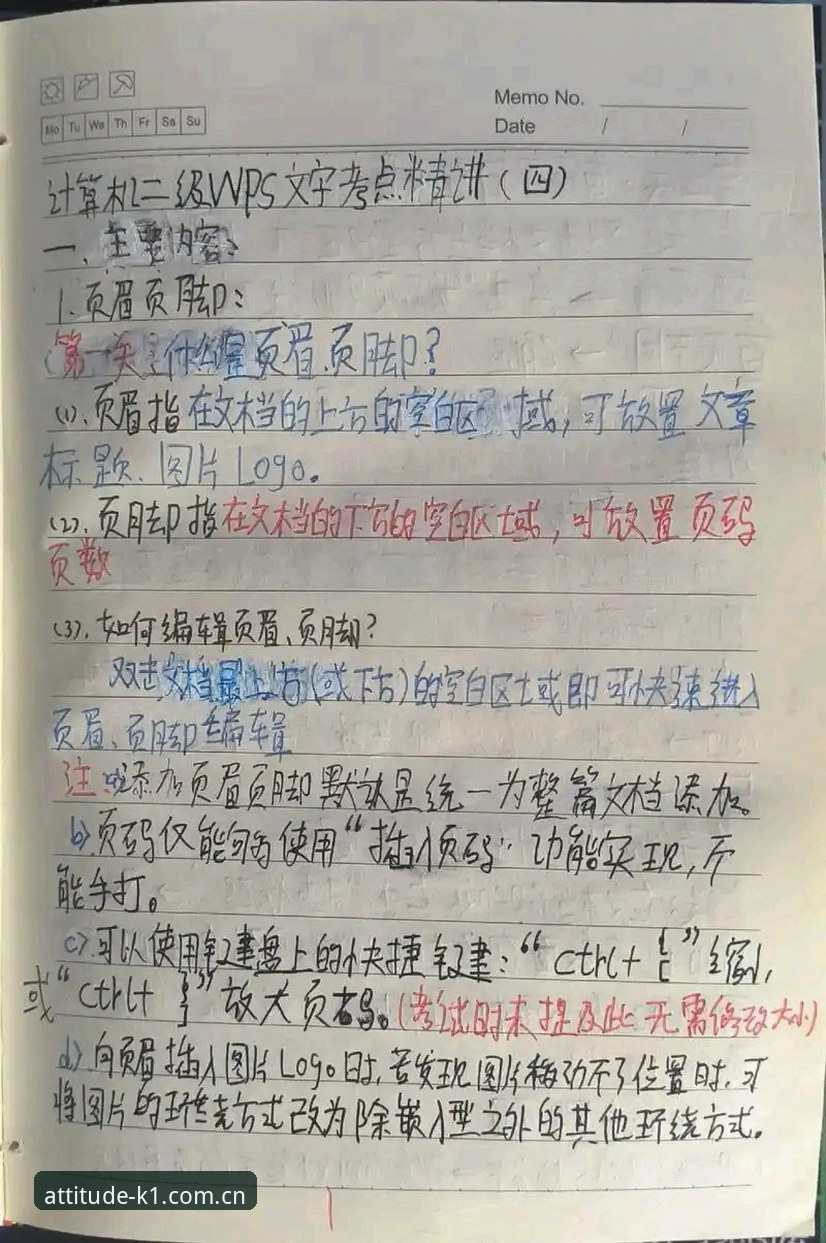 Memo No.
Mo Tu We Th Fr Sa Su
Date / /
计算机二级WPS文字考点精讲(四)
一、主要内容:
1.页眉页脚:
(第一关:什么是页眉、页脚?
(1).页眉指在文档的上方的空白区域,可放置文章
标题、图片Logo。
(2).页脚指在文档的下方的空白区域,可放置页码
页数
(3).如何编辑页眉、页脚?
双击文档最上方(或下方)的空白区域即可快速进入
页眉、页脚编辑
注:添加页眉页脚默认是统一为整篇文档添加。
b)页码仅能够使用“插入页码”功能实现,不
能手打。
c)可以使用键盘上的快捷键:“ctrl+{[”缩小,
或“ctrl+}]”放大页码。(考试时未提及此无需修改大小)
d)向页眉插入图片Logo时,若发现图片移动不了位置时,可
将图片的环绕方式改为除嵌入型之外的其他环绕方式。
attitude-k1.com.cn